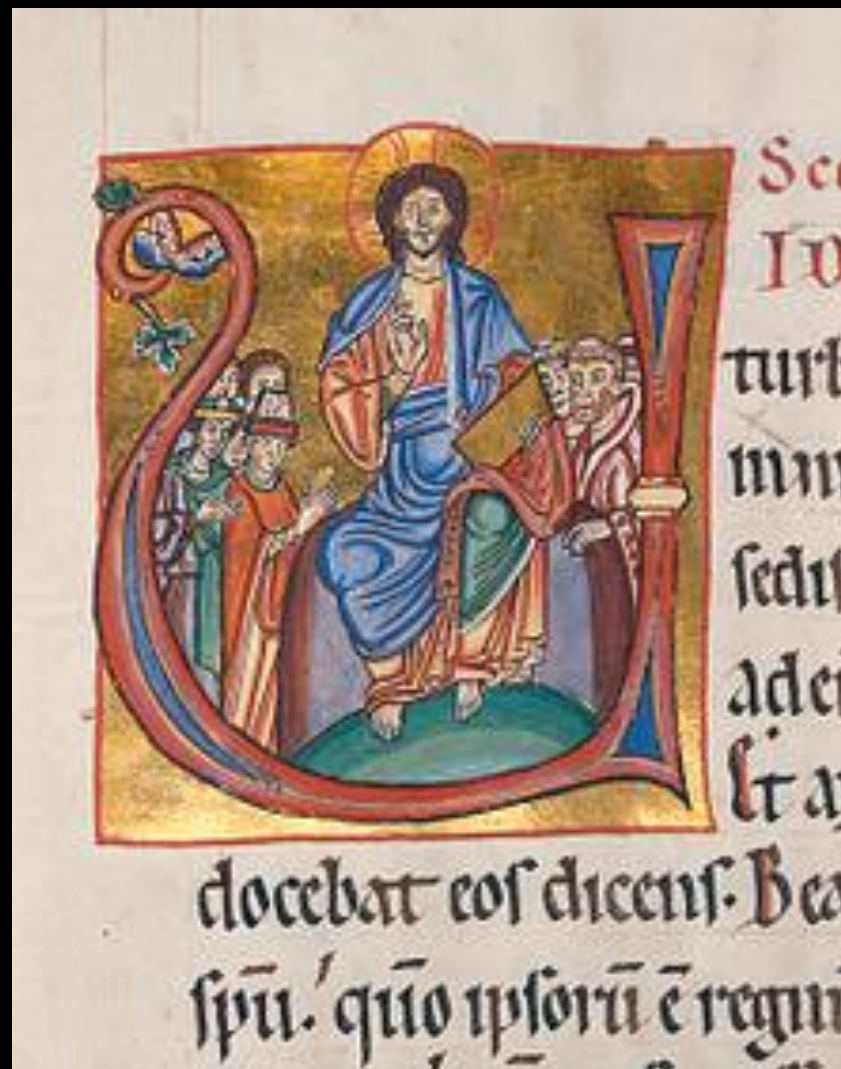 U
ID
turb
sediſ
ad ei
Et a
docebat eoſ dicenſ. Bea
ſpū. qūo ipſorū ē regnu